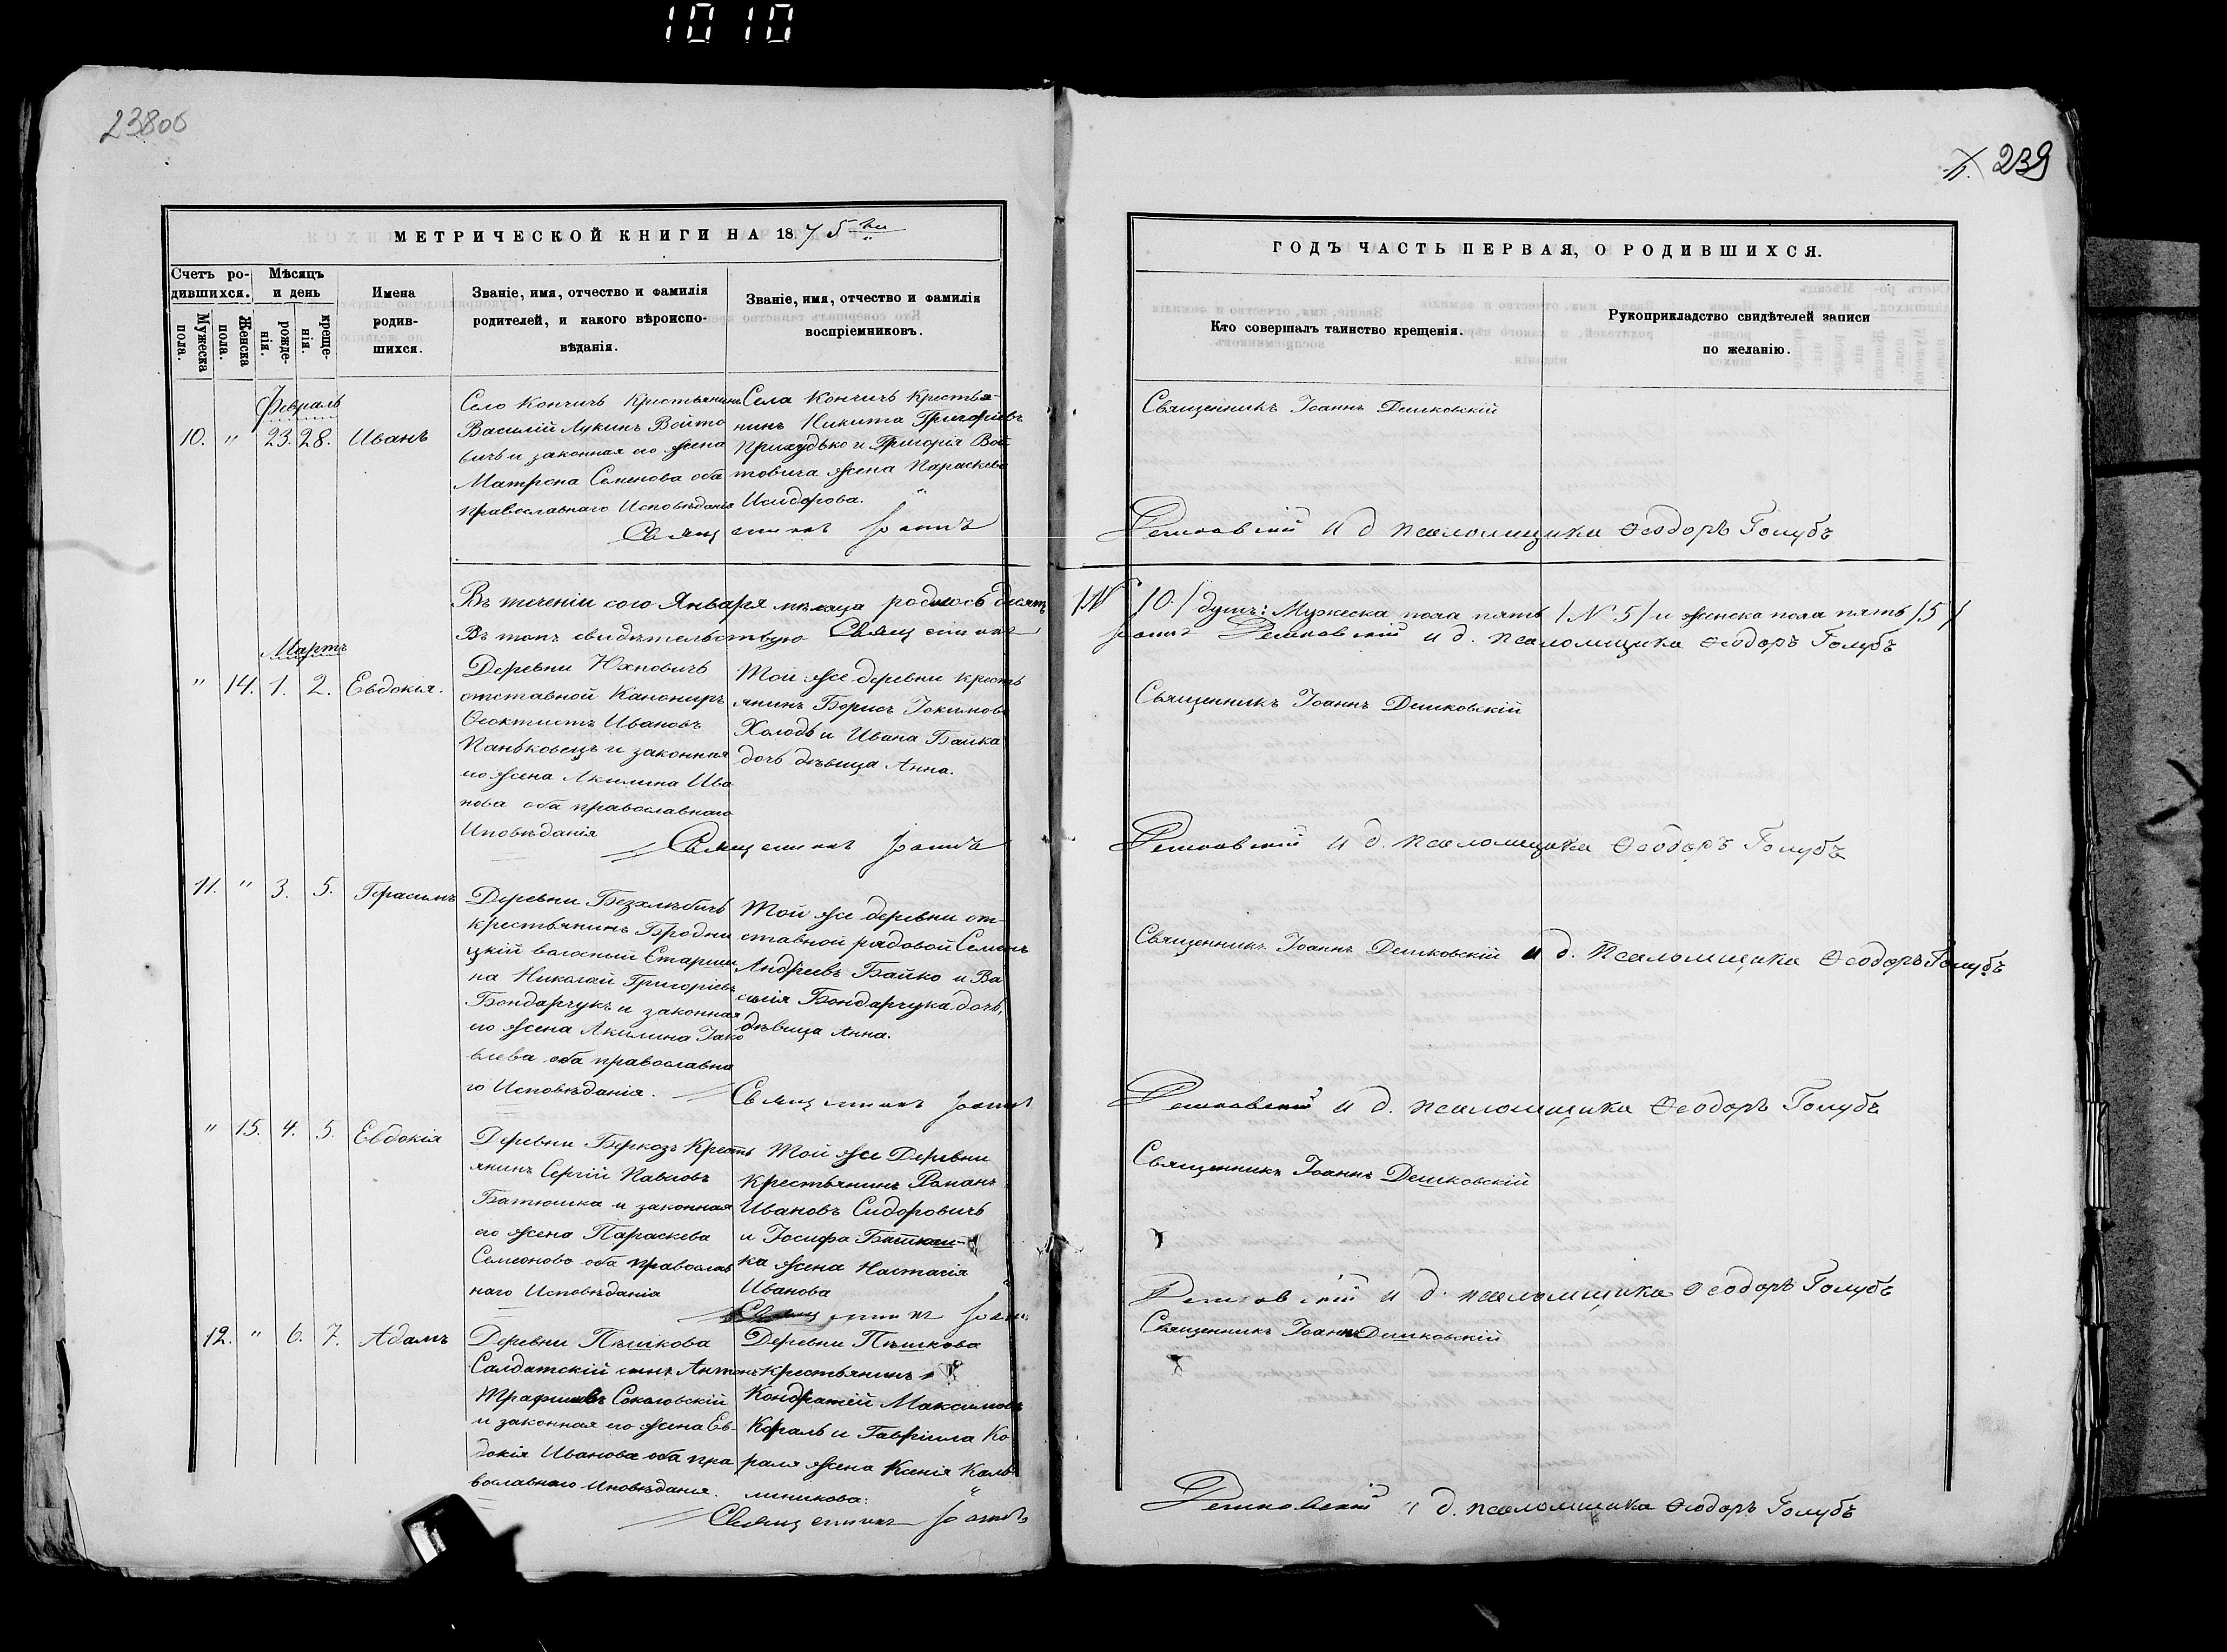 1010
23800
239
МЕТРИЧЕСКОЙ КНИГИ НА 1875
Счетъ ро-
дившихся.
Мужеска пола.
Женска пола.
Мѣсяцъ
и день
рожде-
нія.
креще-
нія.
Имена
родив-
шихся.
Званіе, имя, отчество и фамилія
родителей, и какого вѣроиспо-
вѣданія.
Званіе, имя, отчество и фамилія
воспріемниковъ.
Февраль
10. " 23. 28. Иванъ
Село Кончичь Крестьянинъ
Василій Лукинъ Войто
вичъ и законная его жена
Матрона Семенова оба
православнаго Исповѣданія
Села Кончичь Крестья-
нинъ Никита Григоріевъ
и Григорія Вой
товича жена Параскева
Исидорова.
Священникъ Іоаннъ
Въ теченіи сего Января мѣсяца родилось десять
Въ томъ свидѣтельствую Священникъ
Мартъ
" 14. 1. 2. Евдокія.
Деревни Юхновичь
отставной Канониръ
Ѳеоктистъ Ивановъ
Паньковецъ и законная
его жена Акилина Ива
нова оба православнаго
Иповѣданія
Той же деревни кресть
янинъ Борисъ Іокимовъ
Холодъ и Ивана Байка
дочь дѣвица Анна.
Священникъ Іоаннъ
11. " 3. 5. Герасимъ
Деревни Безхлѣбичь
крестьянинъ Бродни
цкій волосный Старши
на Николай Григоріевъ
Бондарчукъ и законная
его жена Акилина Іако
влева оба православна
го Исповѣданія.
Той же деревни от-
ставной рядовой Семенъ
Андреевъ Байко и Ва
силія Бондарчука дочь,
дѣвица Анна.
Священникъ Іоаннъ
" 15. 4. 5. Евдокія
Деревни Беркозъ Кресть
янинъ Сергій Павловъ
Батюшка и законная
его жена Параскева
Семеонова оба православ
наго Исповѣданія
Той же Деревни
Крестьянинъ Романъ
Ивановъ Сидоровичь
и Іосифа
ка жена Настасія
Иванова
Священникъ Іоаннъ
12. " 6. 7. Адамъ
Деревни Пѣшкова
Салдатскій сынъ Антонъ
Трафимовъ Соколовскій
и законная его жена Ев-
докія Иванова оба пра
вославнаго Иповѣданія.
Деревни Пѣшкова
крестьянинъ
Кондратій Максимовъ
Кораль и Гавріила Ко
раля жена Ксенія Каль
линикова.
Священникъ Іоаннъ
ГОДЪ ЧАСТЬ ПЕРВАЯ, О РОДИВШИХСЯ.
Кто совершалъ таинство крещенія.
Рукоприкладство свидѣтелей записи
по желанію.
Священникъ Іоаннъ Дешковскій
Дешковскій И д псаломщика Ѳеодоръ Голубъ
№ 10/ душъ: Мужеска пола пять /№ 5/ и женска пола пять /5/
Іоаннъ Дешковскій И д. псаломщика Ѳеодоръ Голубъ
Священникъ Іоаннъ Дешковскій
Дешковскій И д. псаломщика Ѳеодоръ Голубъ
Священникъ Іоаннъ Дешковскій И д. Псаломщика Ѳеодоръ Голубъ
Дешковскій И д. псаломщика Ѳеодоръ Голубъ
Священникъ Іоаннъ Дешковскій
Дешковскій И д. псаломщика Ѳеодоръ Голубъ
Священникъ Іоаннъ Дешковскій
Дешковскій И д. псаломщика Ѳеодоръ Голубъ